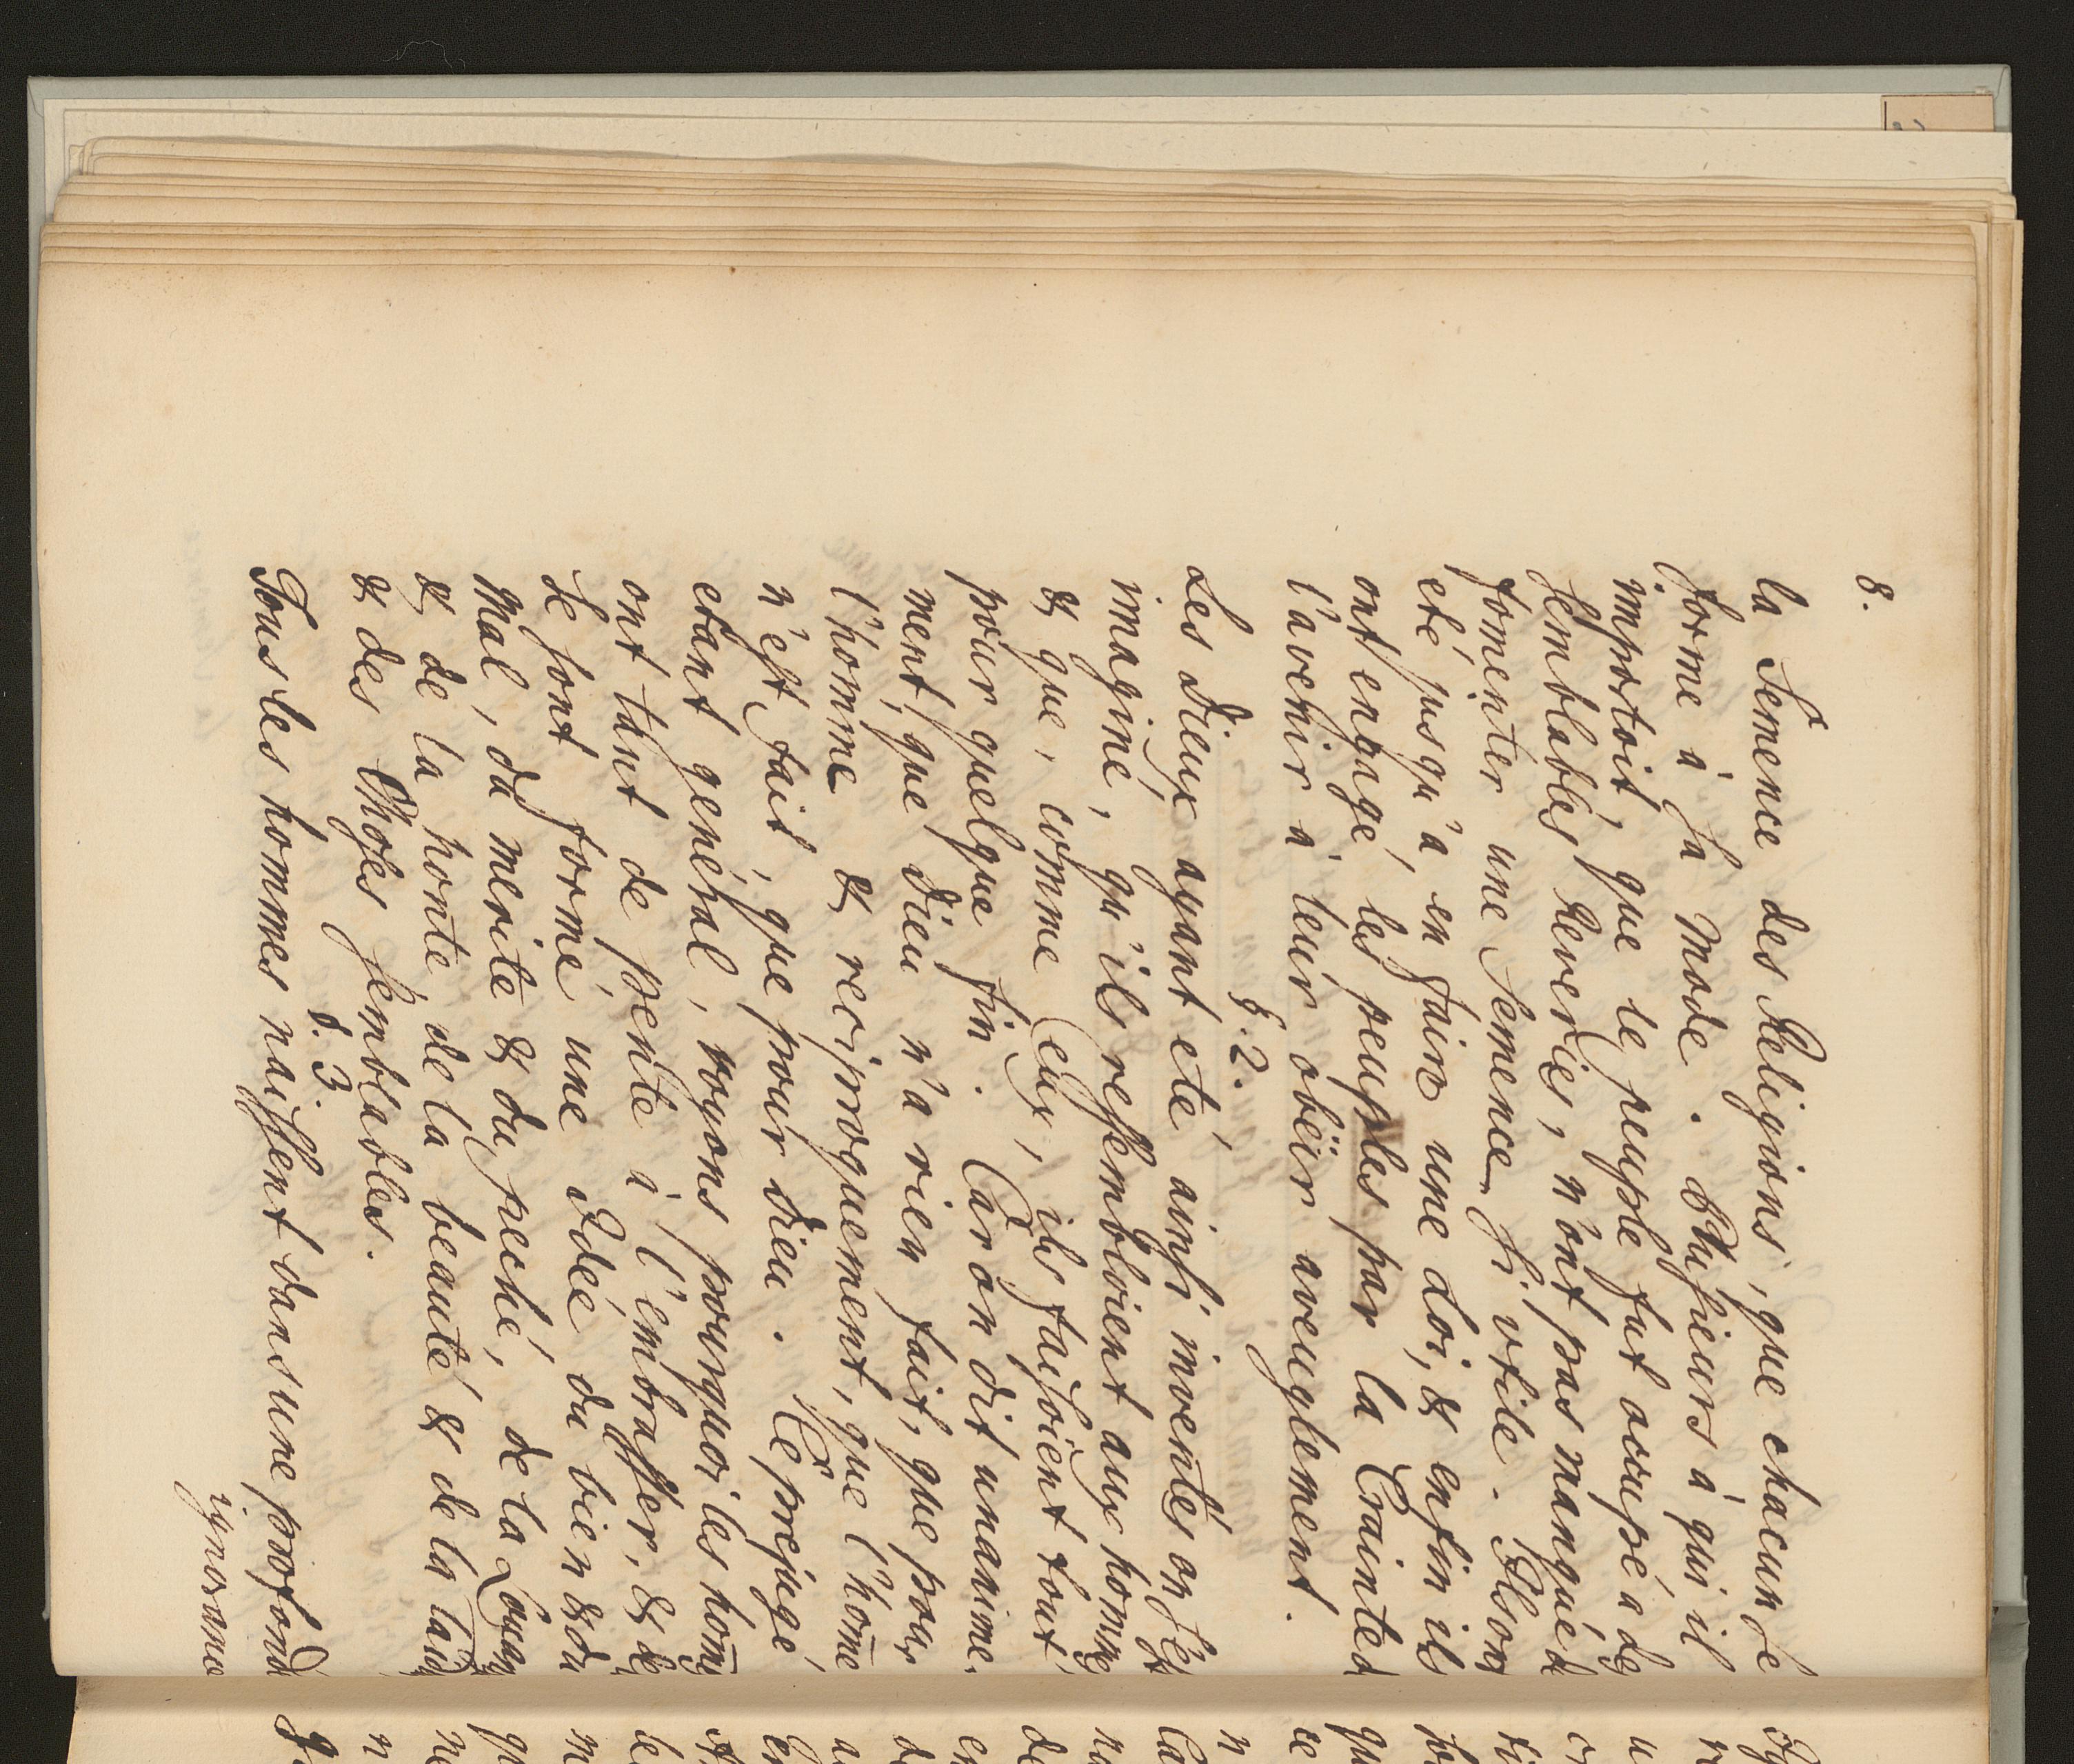 8.
la Semence des Religions, que chacun se
forme à sa Mode. Plusieurs à qui il
importoit, que le peuple fut occupé a de
Semblables Reveries, n'ont pas manqué d
fomenter une Semence si vtile. Ils on
eté jusqu'a en faire une Loi, & enfin ils
ont engagé, les peuples par la Crainte d
l'avenir à leur obëir aveuglement.
§. 2.
Les Dieux ayant eté ainsi inventés on s'est
imaginé, qu'ils ressembloient aux homme
& que, comme Eux, ils faisoient tout
pour quelque fin. Car on dit unanime-
ment, que Dieu n'a rien fait, que pour
l'homme & reciproquement, que l'home
n'est fait, que pour Dieu. Ce prejugé
etant genéral, voyons pourquoi les home
ont tant de pente à l'embrasser, & de
Se font formé une Idée du bien & du
Mal, du merite & du peché, de la Louan
& de la honte, de la beauté & de la laid
& des Choses semblables.
§. 3.
Tous les hommes naissent dans une profond
ignorance